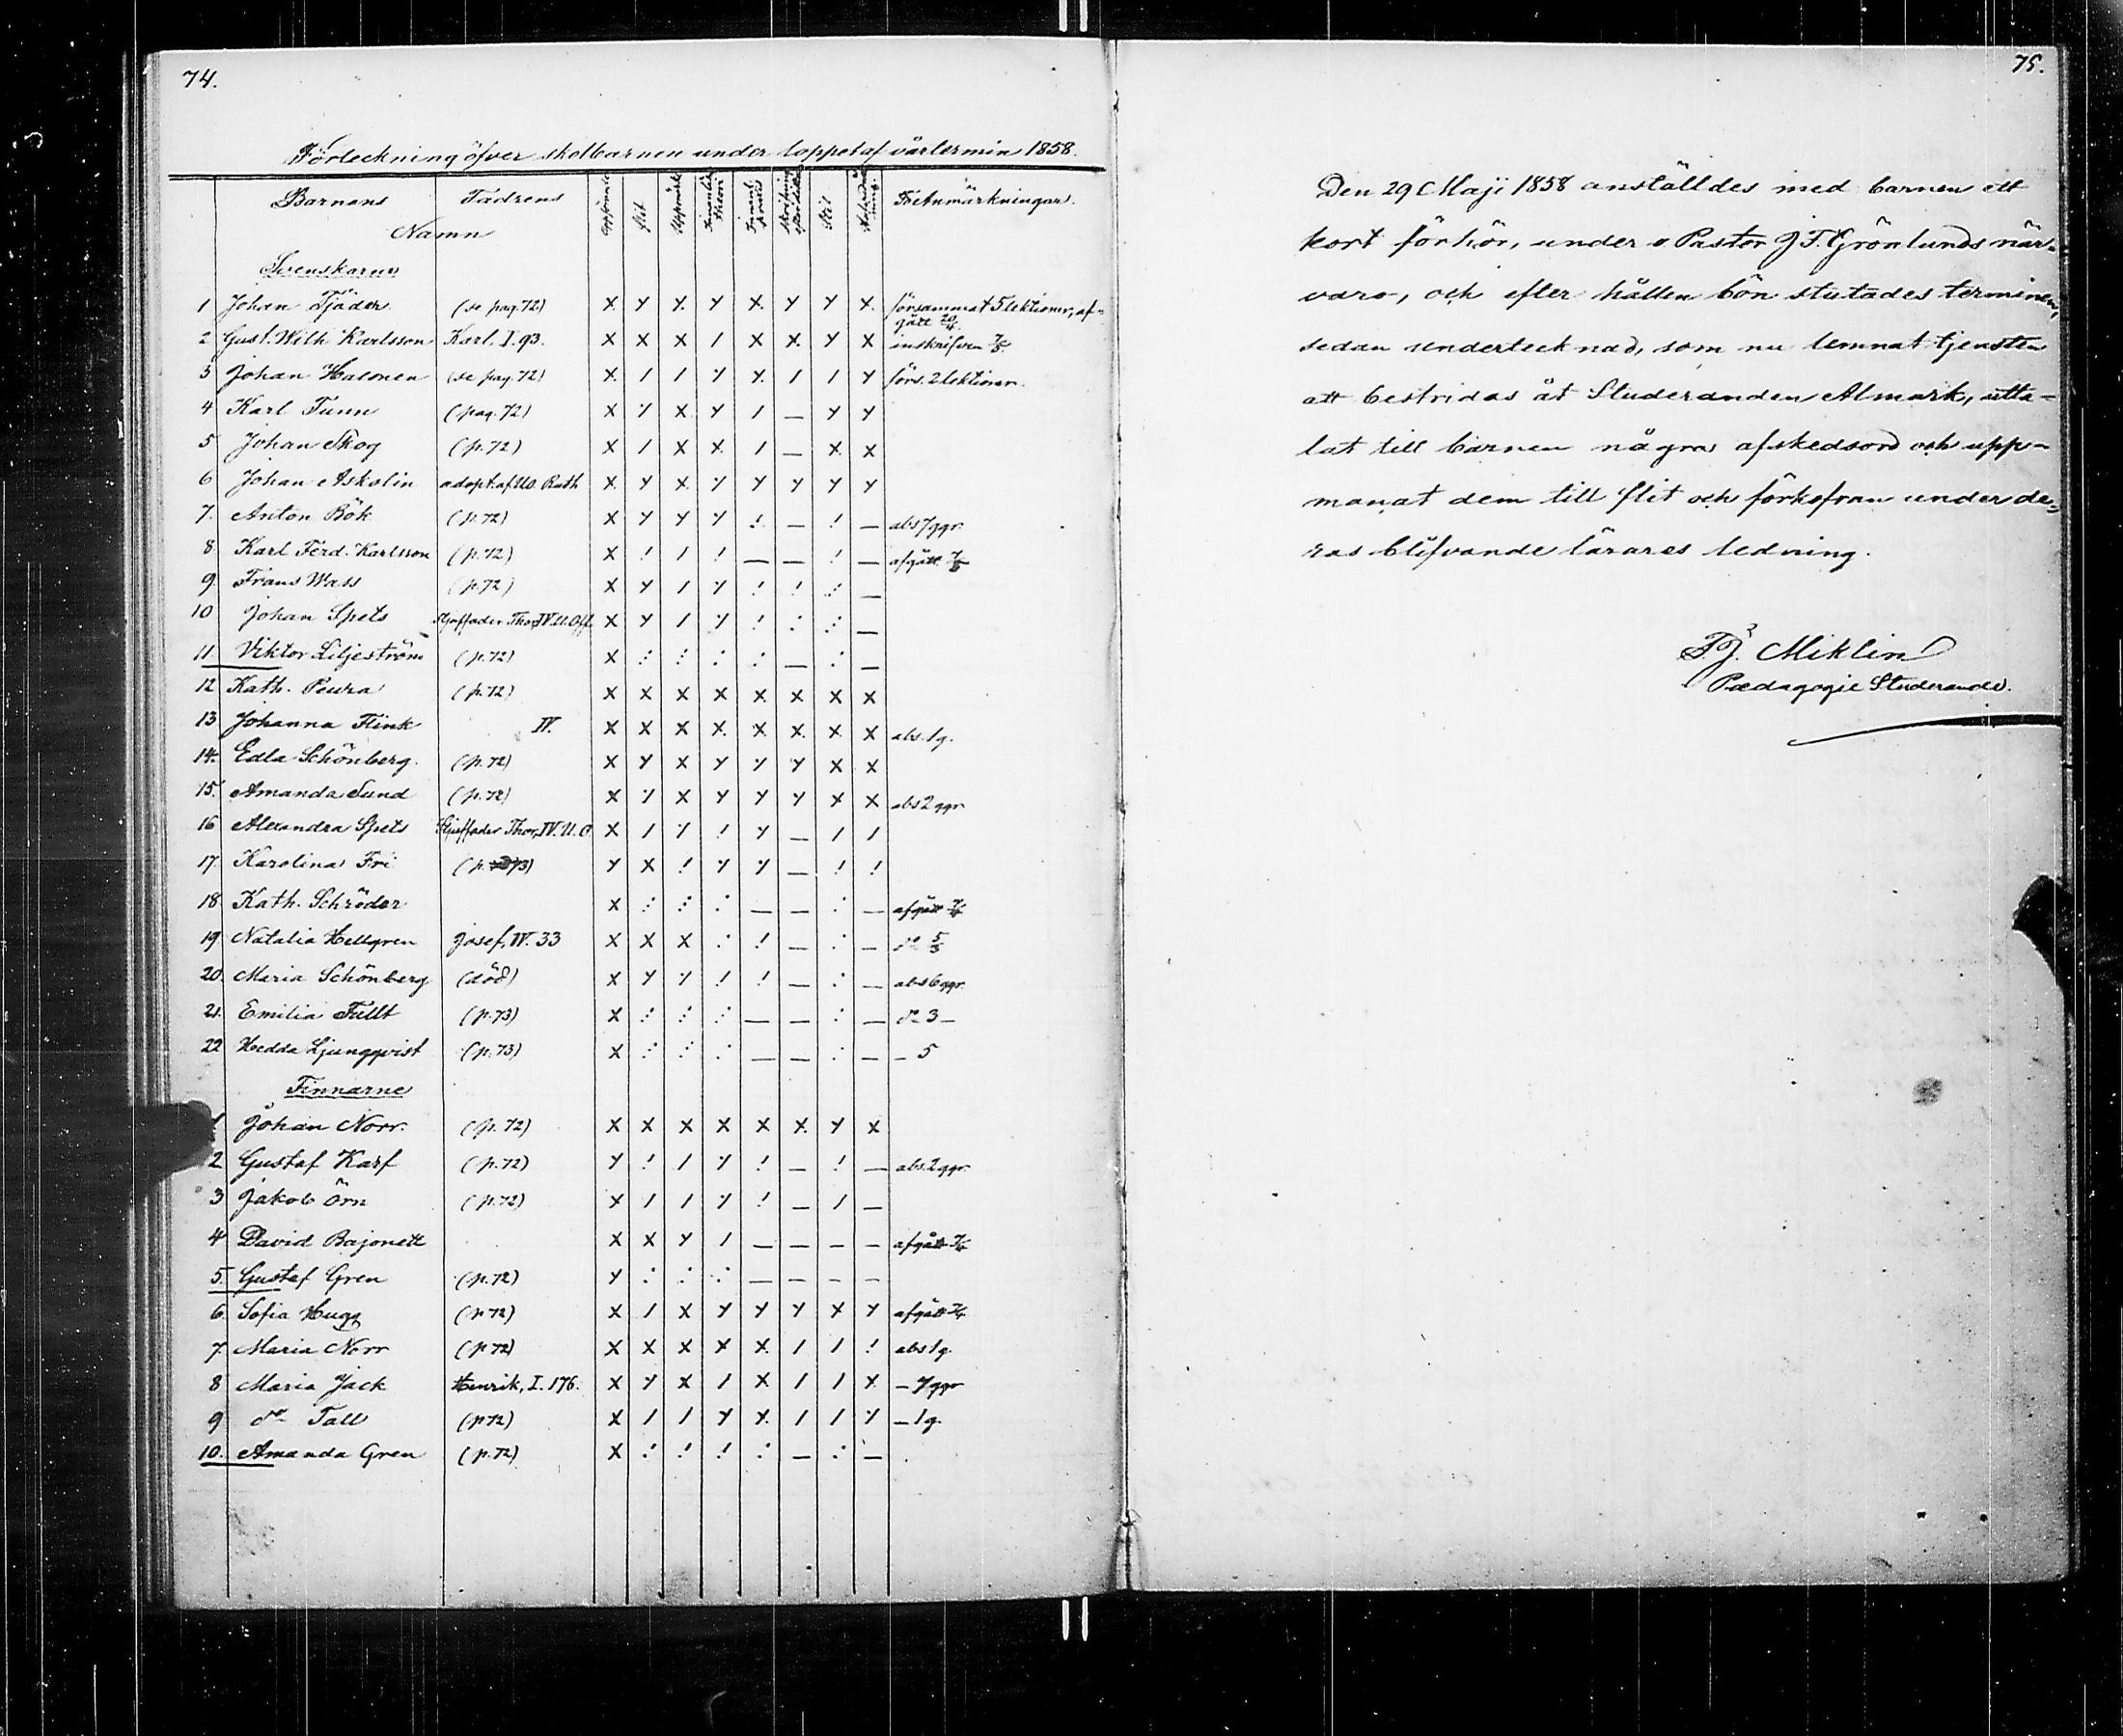 74.
Förteckning öfver skolbarnen under loppet af vårtermin 1858.
Barnens Fadrens Flit Stil Anmärkningar.
Namn
Svenskarne
1 Johan Tjäder (se pag. 72) X Y X Y X Y Y X försummat 5 lektioner, af-
gått 20/4
2 Gust. Wilh. Karlsson Karl. I. 93. X X X / X X Y X inskrifven
3 Johan Hasonen (se pag. 72) X / / Y Y / / Y förs. 2 lektioner.
4 Karl Tunn (pag. 72) X Y X Y / — Y Y
5 Johan Skog (p. 72) X / X X / — X X
6 Johan Askolin adopt. af U.O. Rath X Y X Y Y Y Y Y
7. Anton Bök (p. 72) X Y Y Y ! — ! — abs 7 ggr.
8 Karl Ferd. Karlsson (p. 72) X ! / ! — — ! — afgått
9. Frans Wass (p. 72) X Y / Y ! ! : —
10 Johan Spets Styffader Thor, IV. U. Off. X Y / Y ! : : —
11. Viktor Liljeström (p. 72) X : : : : — : —
12 Kath. Peura (p. 72) X X X X X X X X
13 Johanna Flink IV. X X X X X X X X abs. 1 g.
14. Edla Schönberg. (p. 72) X Y X Y Y Y X X
15. Amanda Sund (p. 72) X Y X Y Y Y X X abs 2 ggr
16 Alexandra Spets Styffader Thor, IV. U. O X / Y ! Y — / /
17. Karolina Fri (p. 73) Y X ! Y Y — ! !
18 Kath. Schröder X : : : — — : — afgått
19. Natalia Hellgren Josef, IV. 33 X X X : ! — : — d:o 5/3
20. Maria Schönberg (död) X Y Y ! ! — : — abs 6 ggr.
21. Emilia Fullt (p. 73) X : : : — — : — d:o 3 —
22 Hedda Ljungqvist (p. 73) X : : : — — : — — 5
Finnarne
1 Johan Norr. (p. 72) X X X X X X Y X
2 Gustaf Karf (p. 72) Y ! / Y ! — ! — abs. 2 ggr.
3 Jakob Örn (p. 72) X / / Y ! — / —
4 David Bajonett X X Y / — — — — afgått
5. Gustaf Gren (p. 72) Y : : : — — — —
6. Sofia Hugg (p 72) X / X Y Y Y X Y afgått
7. Maria Norr (p 72) X X X X X / / ! abs 1 g.
8 Maria Jack Henrik, I. 176. X Y X / X / / X — 7 ggr
9 d:o Tall (p 72) X / / Y Y / / Y — 1 g.
10. Amanda Gren (p. 72) X : ! ! : — : —
75.
Den 29 Maji 1858 anställdes med barnen ett
kort förhör, under v. Pastor J. F. Grönlunds när-
varo, och efter hållen bön slutades terminen,
sedan undertecknad, som nu lemnat tjensten
att bestridas åt Studeranden Almark, utta-
lat till barnen några afskedsord och upp-
manat dem till flit och förkofran under de-
ras blifvande lärares ledning.
F. J. Miklin
Pædagogie Studerande.